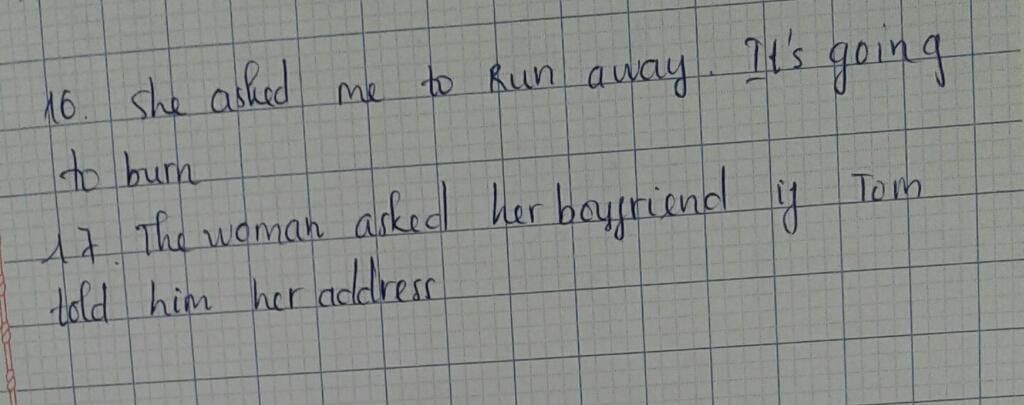 16. she asked me to Run away. It's going
to burn
17. The woman asked her boyfriend if Tom
told him her address